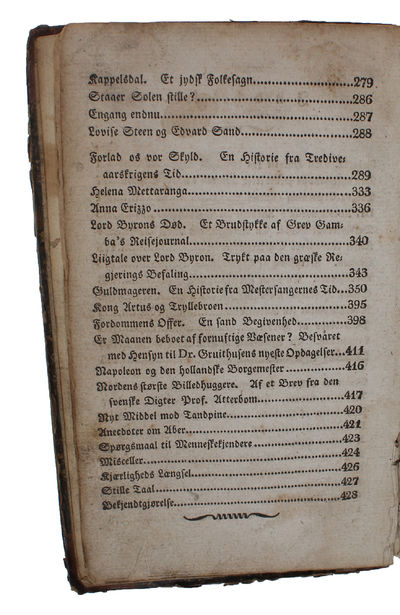 Kappelsdal. Et jydsk Folkesagn................279
Staaer Solen stille?................286
Engang endnu................287
Lovise Steen og Edvard Sand................288
Forlad os vor Skyld. En Historie fra Tredive-
aarskrigens Tid................289
Helena Mettaranga................333
Anna Erizzo................336
Lord Byrons Død. Et Brudstykke af Grev Gam-
ba's Reisejournal................340
Liigtale over Lord Byron. Trykt paa den græske Re-
gjerings Befaling................343
Guldmageren. En Historie fra Mestersangernes Tid...350
Kong Artus og Tryllebroen................395
Fordommens Offer. En sand Begivenhed................398
Er Maanen beboet af fornuftige Væsener? Besvaret
med Hensyn til Dr. Gruithusens nyeste Opdagelser...411
Napoleon og den hollandske Borgemester................416
Nordens største Billedhuggere. Af et Brev fra den
svenske Digter Prof. Atterbom................417
Nyt Middel mod Tandpine................420
Anecdoter om Aber................421
Spørgsmaal til Menneskekjendere................423
Misceller................424
Kjærligheds Længsel................426
Stille Taal................427
Bekjendtgjørelse................428